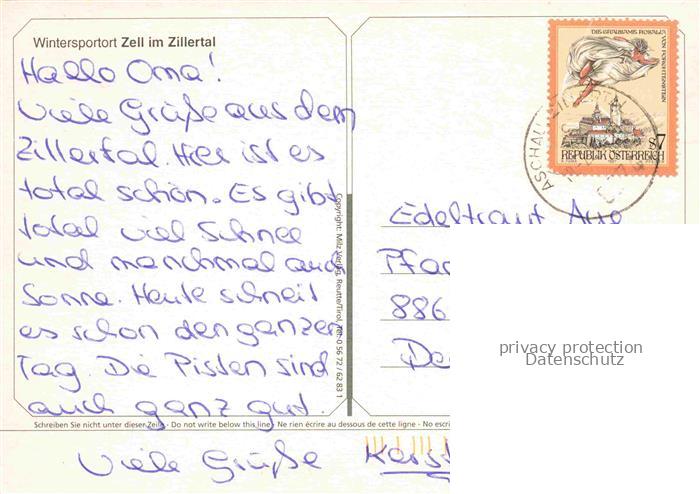 Wintersportort Zell im Zillertal
Hallo Oma!
Viele Grüße aus dem
Zillertal. Hier ist es
total schön. Es gibt
total viel Schnee
und manchmal auch
Sonne. Heute schneit
es schon den ganzen
Tag. Die Pisten sind
auch ganz gut.
Schreiben Sie nicht unter dieser Zeile · Do not write below this line · Ne rien écrire au dessous de cette ligne · No
Viele Grüße
Copyright: Milz Verlag, Reutte/Tirol, Tel. 0 56 72 / 62 83 1
DIE GRAUSAME ROSALIA
VON FORCHTENSTEIN
S7
REPUBLIK ÖSTERREICH
Edeltraut
886
privacy protection
Datenschutz